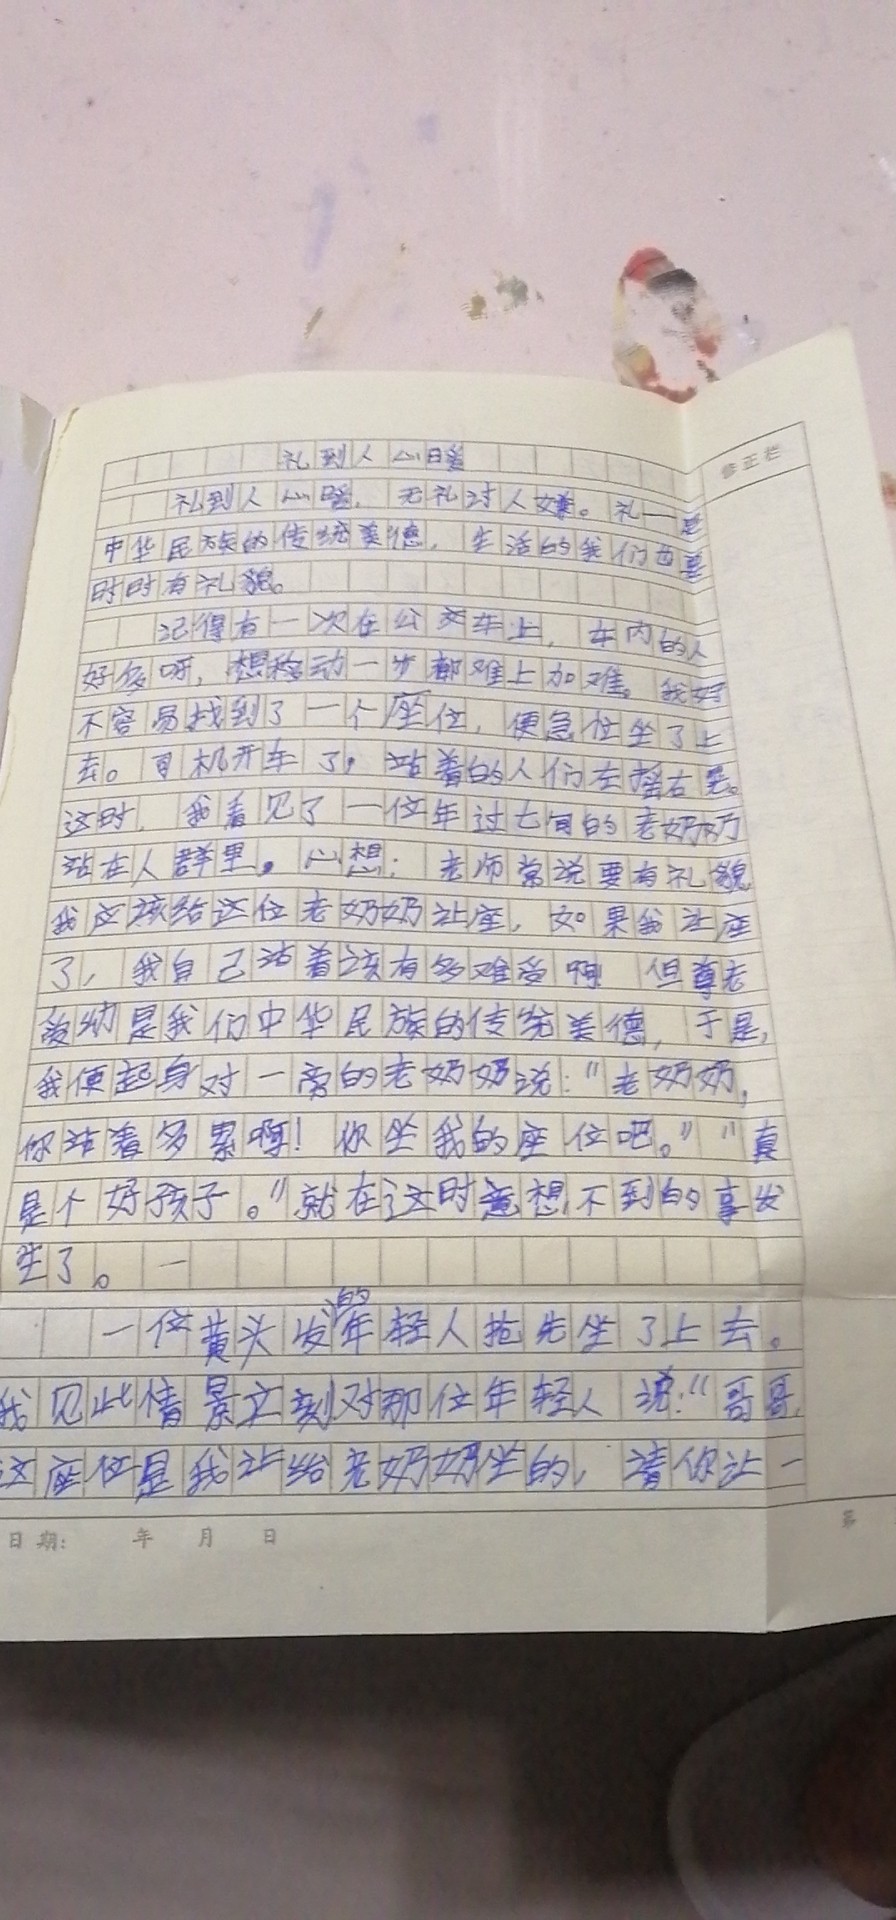 礼到人心暖
修正栏
礼到人心暖，无礼讨人嫌。礼一是
中华民族的传统美德，生活的我们也要
时时有礼貌。
记得有一次在公交车上，车内的人
好多呀，想移动一步都难上加难。我好
不容易找到了一个座位，便急忙坐了上
去。司机开车了，站着的人们左摇右晃。
这时，我看见了一位年过七旬的老奶奶
站在人群里。心想：老师常说要有礼貌
我应该给这位老奶奶让座，如果我让座
了，我自己站着该有多难受啊 但尊老
爱幼是我们中华民族的传统美德，于是，
我便起身对一旁的老奶奶说：“老奶奶，
你站着多累啊！你坐我的座位吧。”“真
是个好孩子。”就在这时意想不到的事发
生了。一
一位黄头发的年轻人抢先坐了上去。
我见此情景立刻对那位年轻人说：“哥哥，
这座位是我让给老奶奶坐的，请你让一
日期： 年 月 日
第